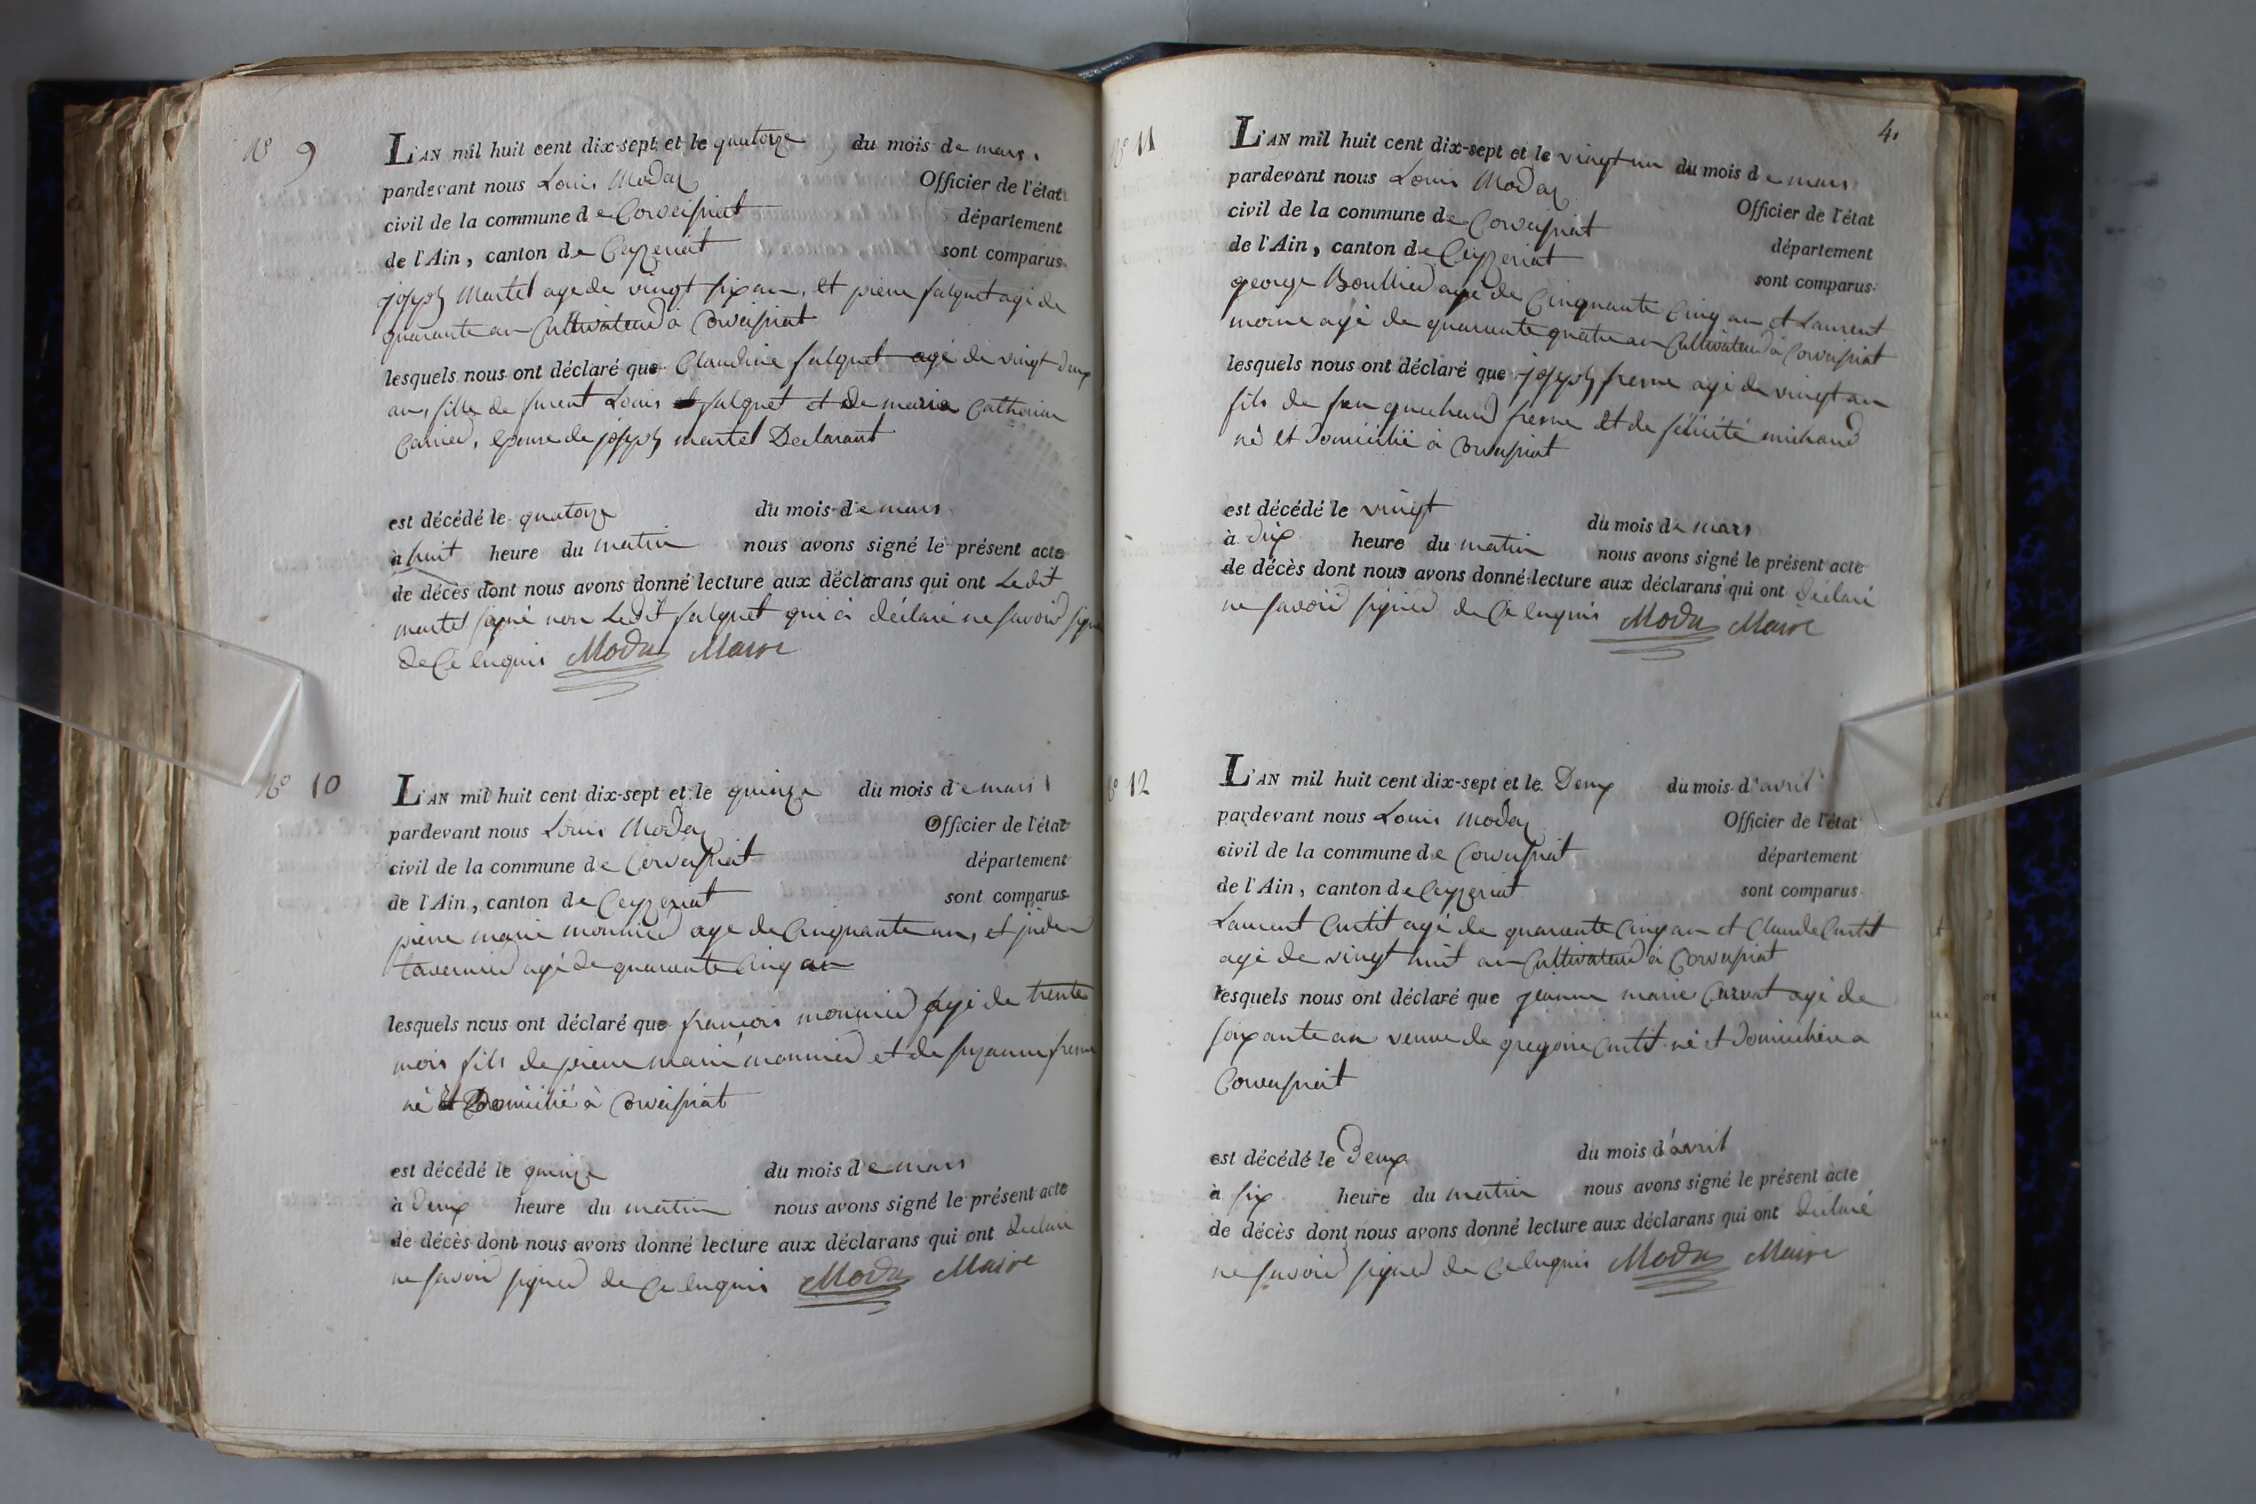 N° 9
L'AN mil huit cent dix-sept et le quatorze du mois de mars
pardevant nous Louis Modas Officier de l'état
civil de la commune de Corveissiat département
de l'Ain, canton de Ceyzeriat sont comparus
joseph Martel agé de vingt six an, et pierre falquet agé de
quarante an Cultivateur à Corveissiat
lesquels nous ont déclaré que Claudine falquet agé de vingt deux
an, fille de Louis falquet et de marie Catherine
épouse de joseph martel Declarant
est décédé le quatorze du mois de mars
à huit heure du matin nous avons signé le présent acte
de décès dont nous avons donné lecture aux déclarans qui ont Ledit
martel signé non Ledit falquet qui à déclaré ne savoir signer
de Ce enquis Modas Maire
N° 10
L'AN mil huit cent dix-sept et le quinze du mois de mars
pardevant nous Louis Modas Officier de l'état
civil de la commune de Corveissiat département
de l'Ain, canton de Ceyzeriat sont comparus
pierre marie monnier age de Cinquante an, et
tavernier agé de quarante Cinq an
lesquels nous ont déclaré que françois monnier agé de trente
mois fils de pierre marie monnier et de suzanne fresne
né et Domicilié à Corveissiat
est décédé le quinze du mois de mars
à deux heure du matin nous avons signé le présent acte
de décès dont nous avons donné lecture aux déclarans qui ont declaré
ne savoir signer de Ce enquis Modas Maire
4.
N° 11
L'AN mil huit cent dix-sept et le vingt un du mois de mars
pardevant nous Louis Modas Officier de l'état
civil de la commune de Corveissiat département
de l'Ain, canton de Ceyzeriat sont comparus
george Boullier agé de Cinquante Cinq an et Laurent
morne agé de quarante quatre an Cultivateur à Corveissiat
lesquels nous ont déclaré que joseph fresne agé de vingt an
fils de feu fresne et de félicité michaud
né et Domicilié à Corveissiat
est décédé le vingt du mois de mars
à dix heure du matin nous avons signé le présent acte
de décès dont nous avons donné lecture aux déclarans qui ont déclaré
ne savoir signer de Ce enquis Modas Maire
N° 12
L'AN mil huit cent dix-sept et le Deux du mois d'avril
pardevant nous Louis Modas Officier de l'état
civil de la commune de Corveissiat département
de l'Ain, canton de Ceyzeriat sont comparus
Laurent Curtit agé de quarante Cinq an et Claude Curtit
agé de vingt huit an Cultivateur à Corveissiat
lesquels nous ont déclaré que jeanne marie Curvat agé de
soixante an veuve de gregoire Curtit né et Domiciliée a
Corveissiat
est décédé le Deux du mois d'avril
à six heure du matin nous avons signé le présent acte
de décès dont nous avons donné lecture aux déclarans qui ont déclaré
ne savoir signer de Ce enquis Modas Maire